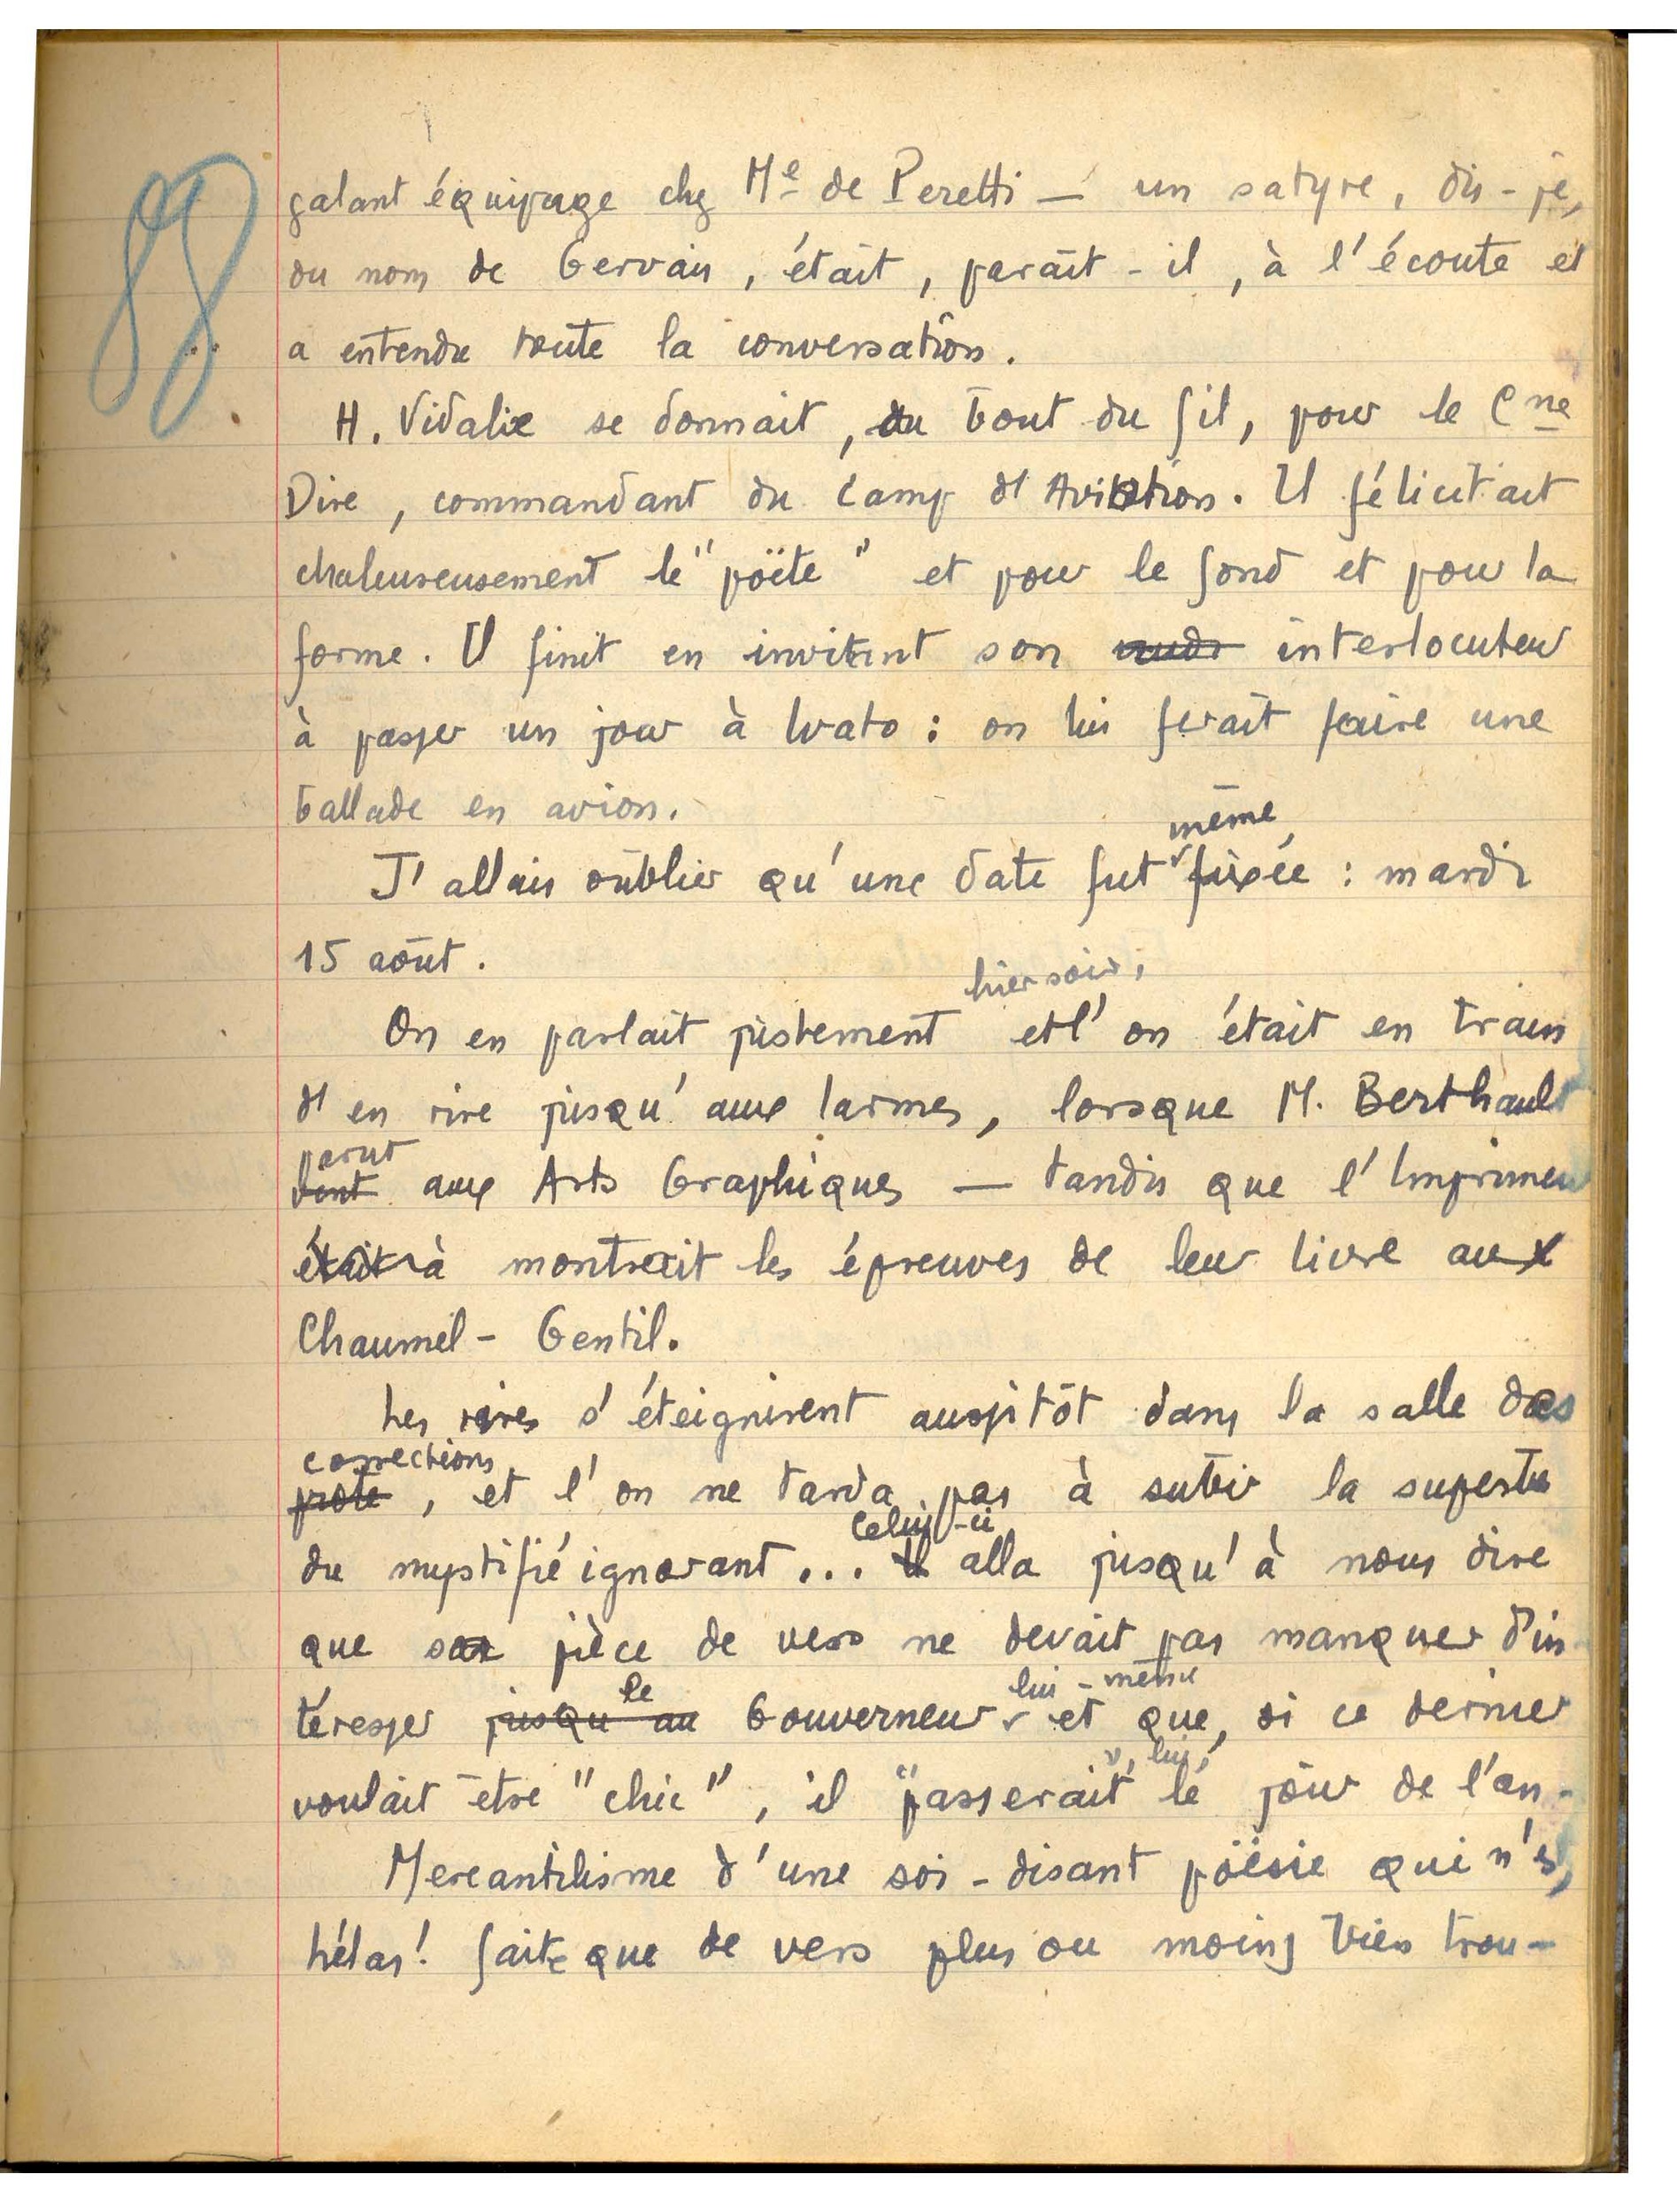 88
galant équipage chez Me de Peretti — un satyre, dis-je,
du nom de Gervais, était, paraît-il, à l'écoute et
a entendu toute la conversation.
H. Vidalie se donnait, au bout du fil, pour le Cne
Dire, commandant du Camp d'Aviation. Il félicitait
chaleureusement le "poëte" et pour le fond et pour la
forme. Il finit en invitant son interlocuteur
à passer un jour à Ivato : on lui ferait faire une
ballade en avion.
même
J'allais oublier qu'une date fut fixée : mardi
15 août.
hier soir,
On en parlait justement et l'on était en train
d'en rire jusqu'aux larmes, lorsque M. Berthault
parut
vint aux Arts Graphiques — tandis que l'Imprimeur
était à montrait les épreuves de leur livre aux
Chaumel-Gentil.
Les rires s'éteignirent aussitôt dans la salle des
corrections
prote, et l'on ne tarda pas à subir la superbe
Celui-ci
du mystifié ignorant... Il alla jusqu'à nous dire
que sa pièce de vers ne devait pas manquer d'in-
le lui-même
téresser jusqu'au Gouverneur et que, si ce dernier
, lui,
voulait être "chic", il "passerait" le jour de l'an.
Mercantilisme d'une soi-disant poësie qui n'est,
hélas! faite que de vers plus ou moins bien trou-